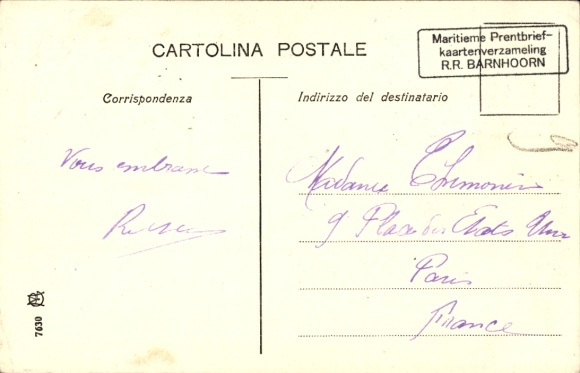 CARTOLINA POSTALE
Maritieme Prentbrief-
kaartenverzameling
R.R. BARNHOORN
Corrispondenza
Indirizzo del destinatario
Vous embrasse
Madame
9 Place des Etats Unis
Paris
France
7630